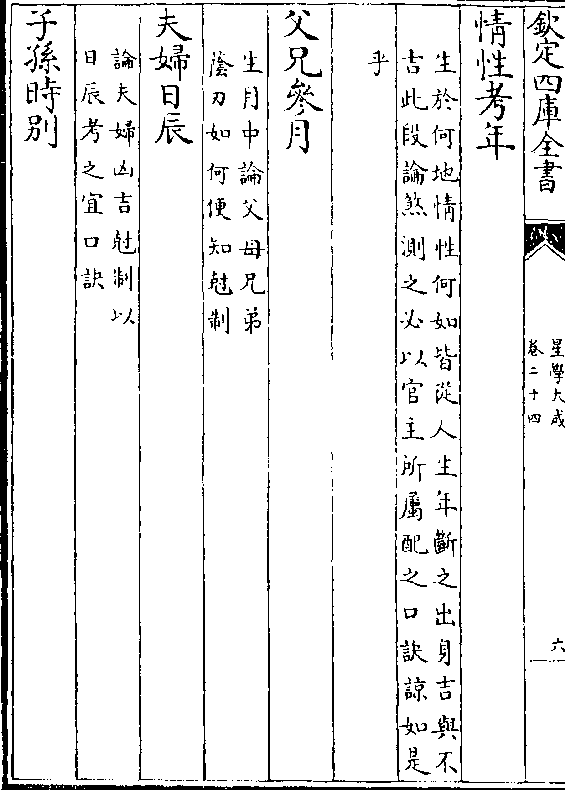 欽定四庫全書
星學大成
卷二十四
六
情性考年
生於何地情性何如皆從人生年斷之出身吉與不
吉此段論煞測之必以官主所屬配之口訣諒如是
乎
父兄參月
生月中論父母兄弟
蔭刃如何便知尅制
夫婦日辰
論夫婦凶吉尅制以
日辰考之宜口訣
子孫時別